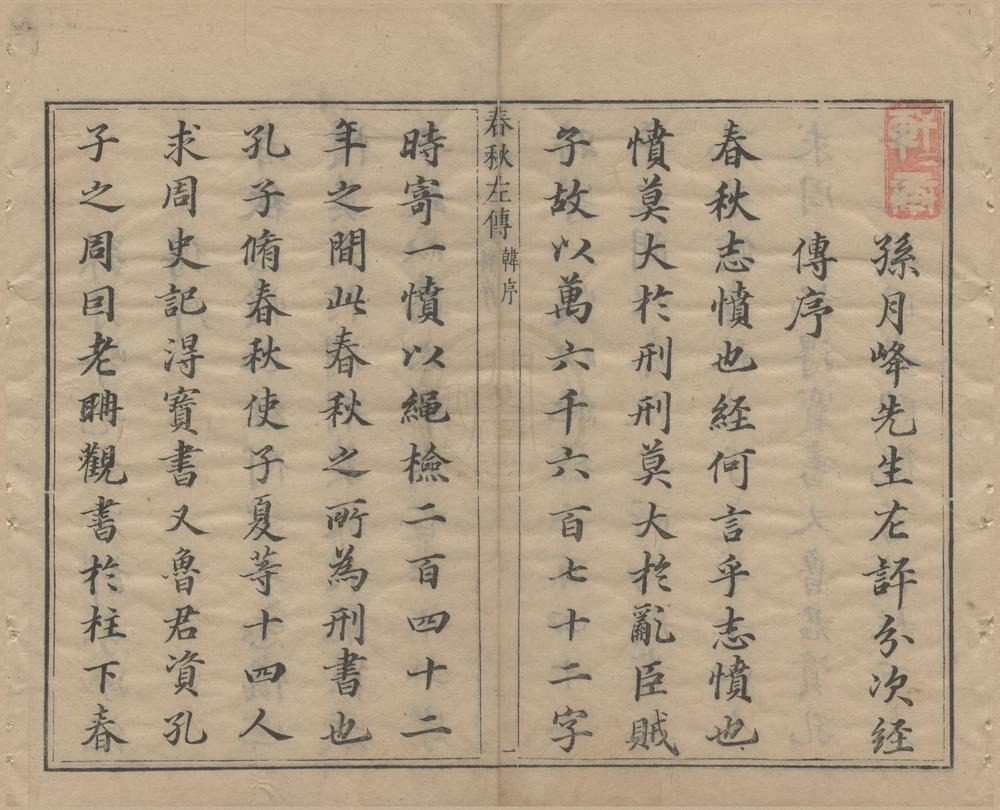 孫月峰先生左評分次經
傳序
春秋志憤也経何言乎志憤也
憤莫大於刑刑莫大於亂臣賊
子故以萬六千六百七十二字
春秋左傳 韓序 一
時寄一憤以繩檢二百四十二
年之間此春秋之所為刑書也
孔子脩春秋使子夏等十四人
求周史記淂寶書又魯君資孔
子之周囙老聃觀書於柱下春